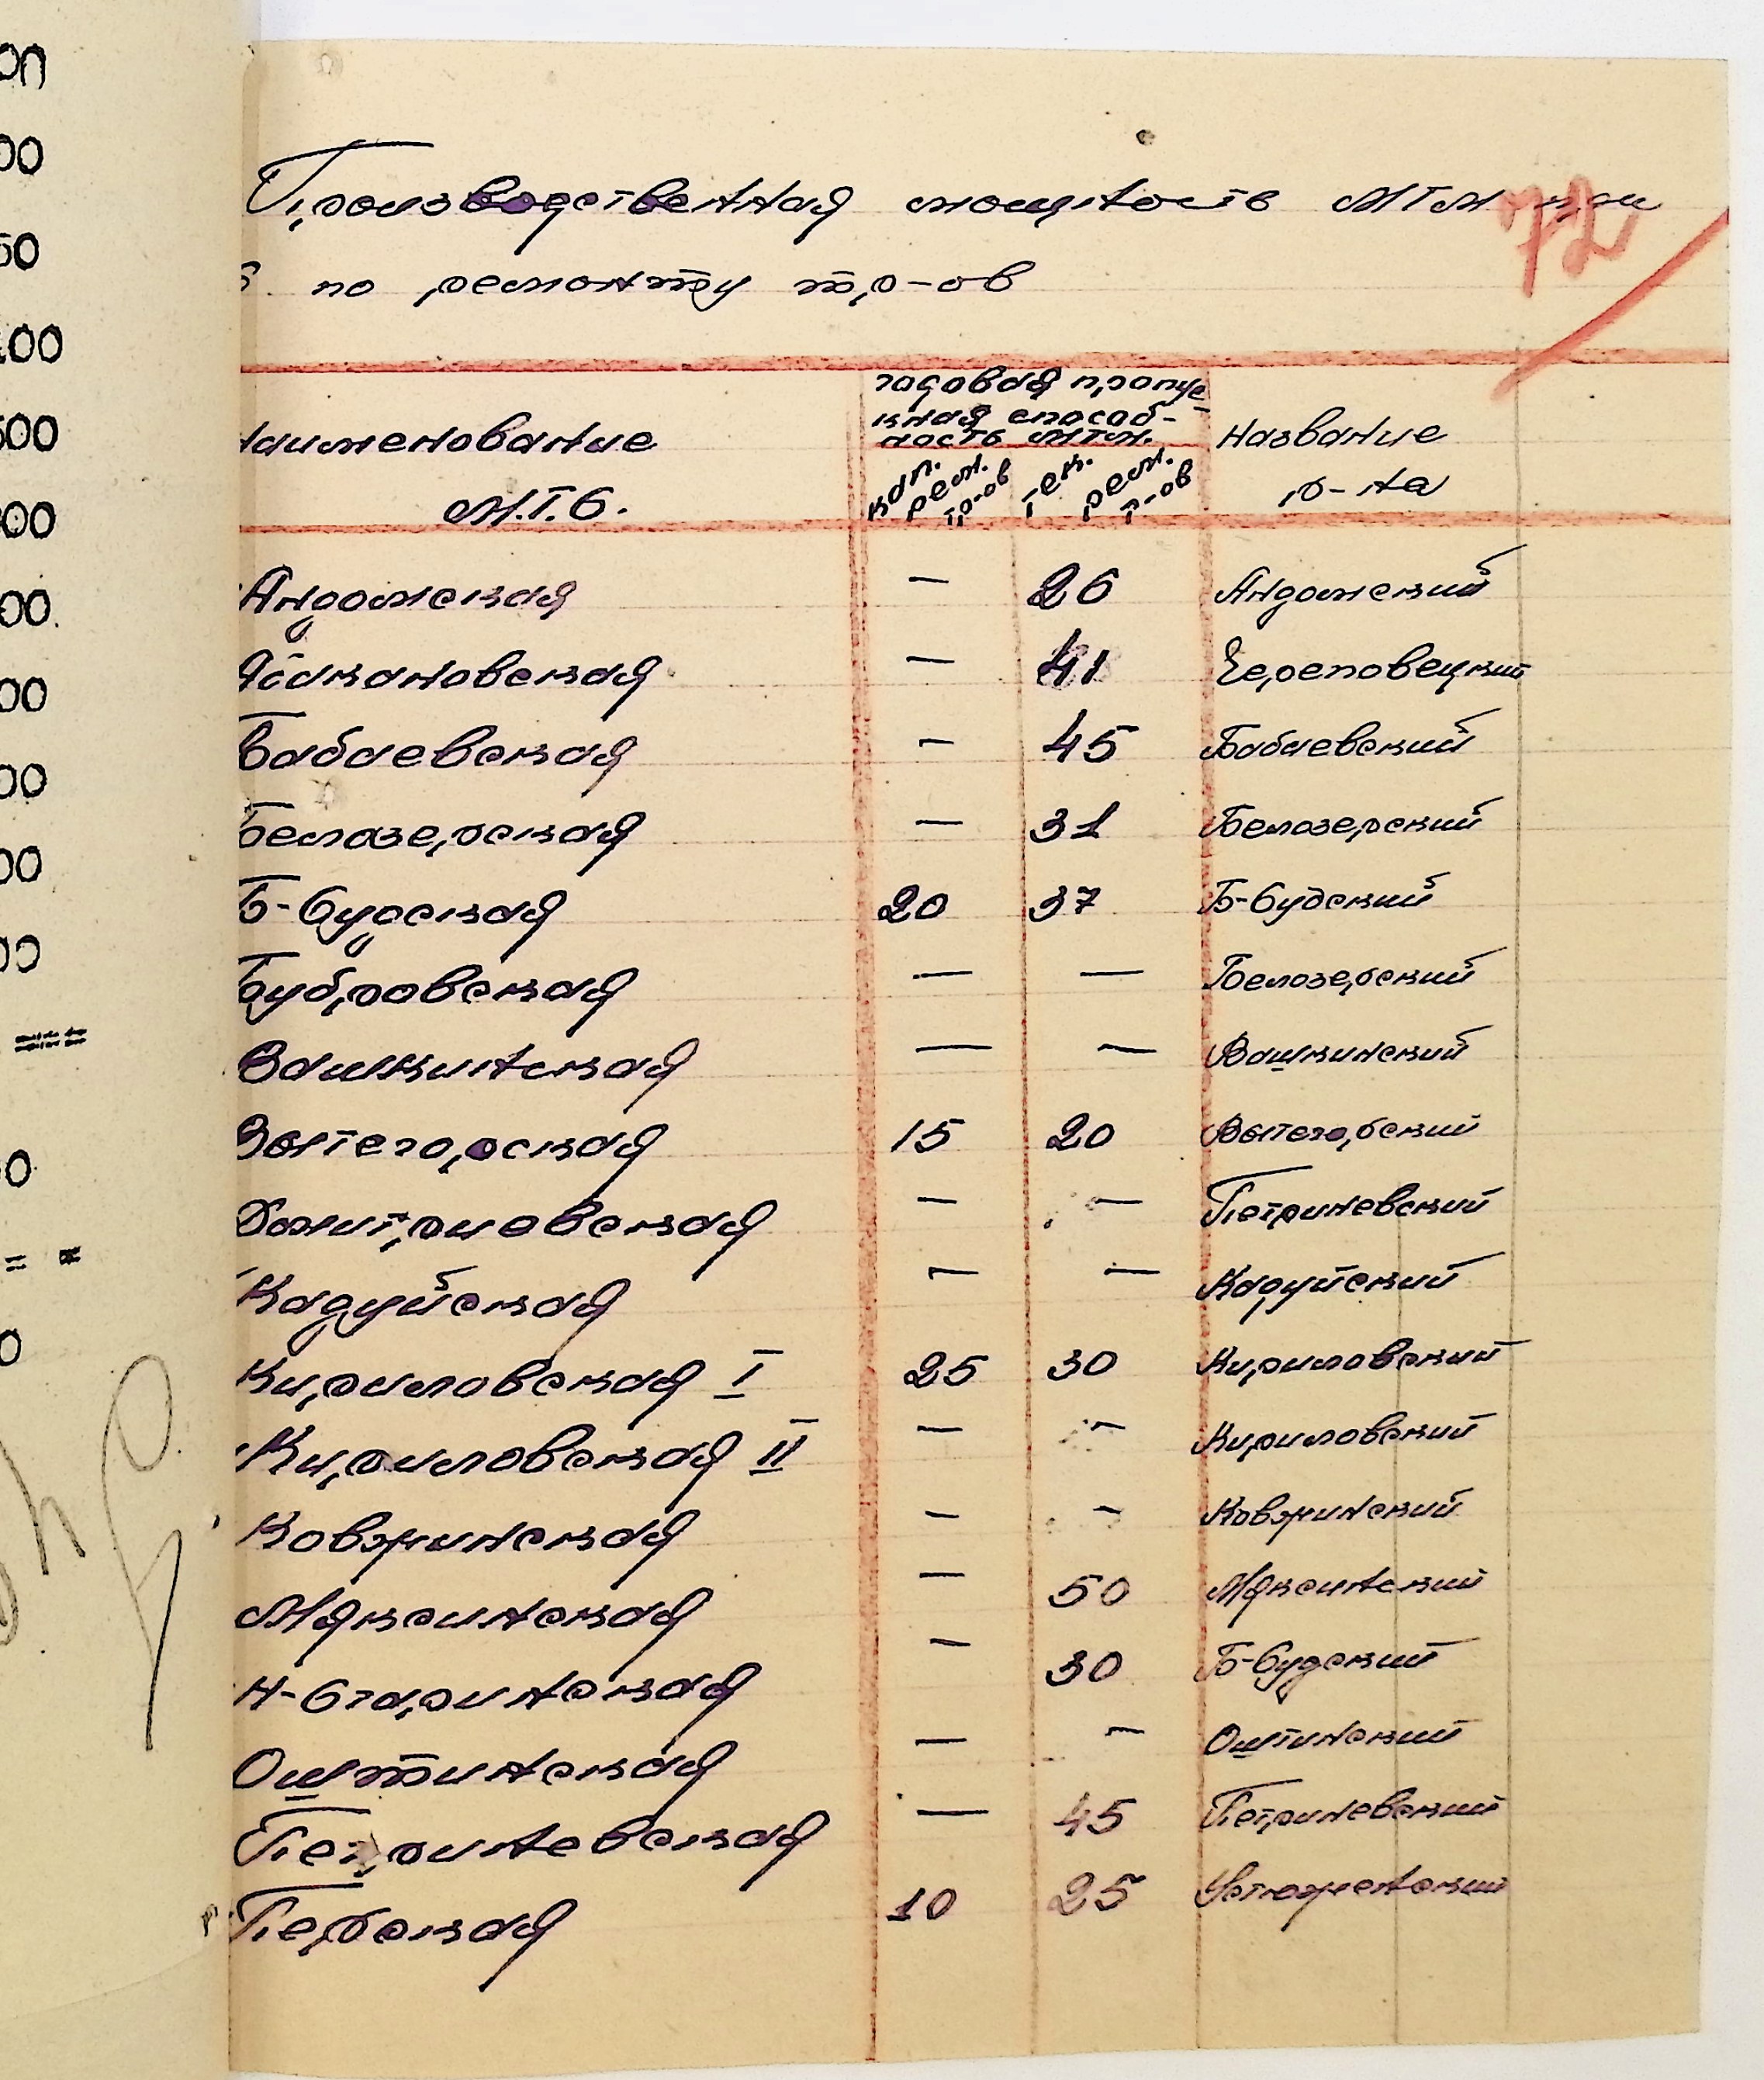 00
00
50
00
500
00
00.
00
00
00
00
=
0
= =
0
72
Производственная мощность МТМ при
по ремонту тр-ов
Наименование М.Т.С. годовая пропускная способность МТМ. Название р-на
кап. рем. тр-ов тек. рем. тр-ов
Андомская — 26 Андомский
Абакановская — 41 Череповецкий
Бабаевская — 45 Бабаевский
Белозерская — 31 Белозерский
Б-Судская 20 37 Б-Судский
Бубровская — — Белозерский
Вашкинская — — Вашкинский
Вытегорская 15 20 Вытегорский
Дмитриевская — — Петриневский
Кадуйская — — Кадуйский
Кириловская I 25 30 Кириловский
Кириловская II — — Кириловский
Ковжинская — — Ковжинский
Мяксинская — 50 Мяксинский
Н-Старинская — 30 Б-Судский
Оштинская — — Оштинский
Петриневская — 45 Петриневский
Перская 10 25 Устюженский